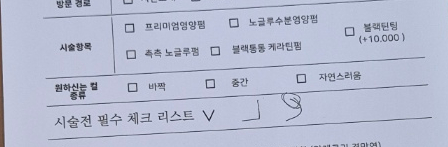 방문 경로
시술항목 □ 프리미엄영양펌 □ 노글루수분영양펌 □ 블랙틴팅 (+10.000 )
□ 촉촉 노글루펌 □ 블랙통통 케라틴펌
원하시는 컬 종류 □ 바짝 □ 중간 □ 자연스러움
시술전 필수 체크 리스트 V